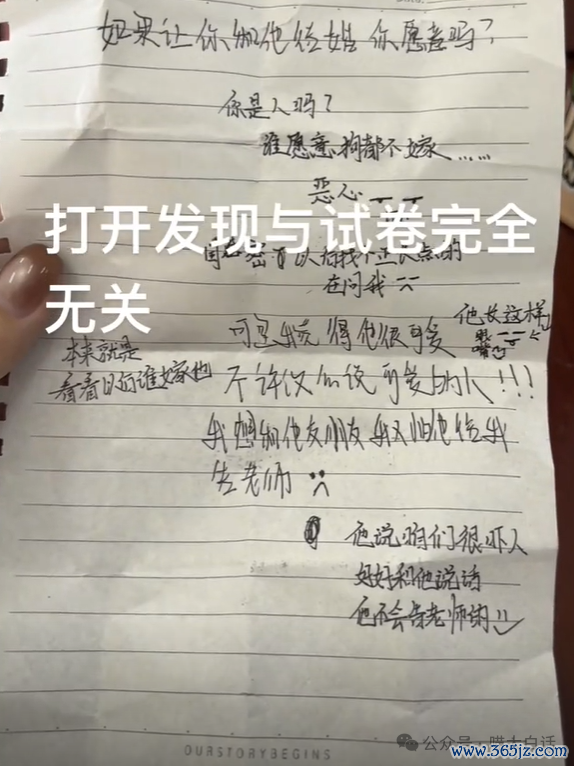 如果让你和他结婚 你愿意吗?
你是人吗?
谁愿意 狗都不嫁……
恶心
打开发现与试卷完全
无关
以后找个正常点的
在问我
可是我觉得他很可爱
他长这样
本来就是
看看以后谁嫁他
不许你们说可爱的人!!!
我想和他交朋友 我又怕他给我
告老师
他说咱们很吓人
好好和他说话
他不会告老师的
OURSTORYBEGINS
公众号·喵大白话
www.365jz.com